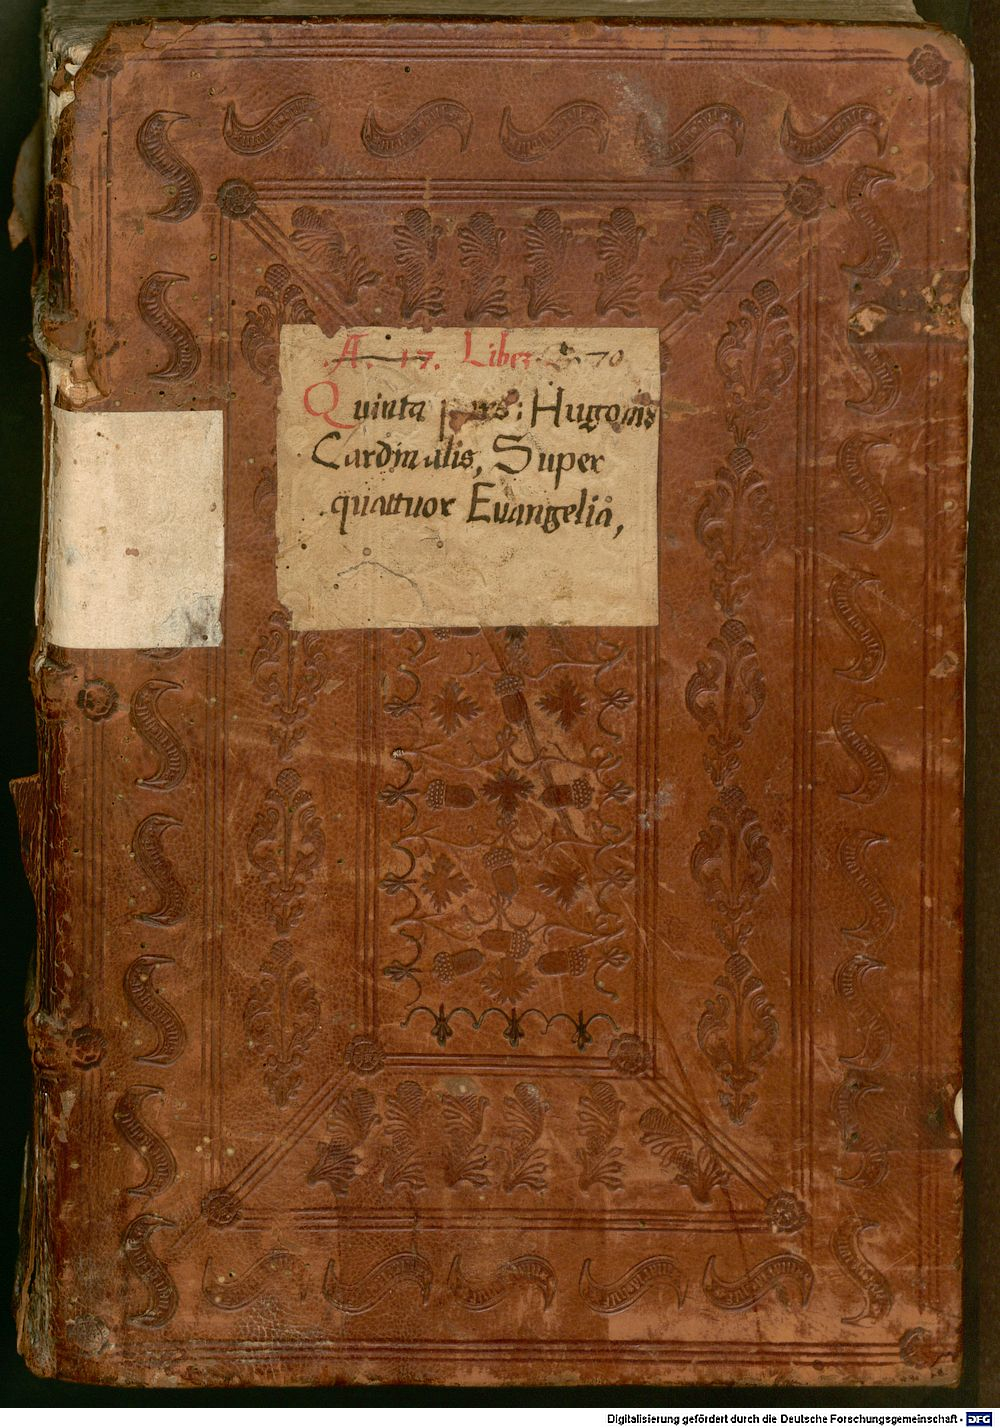 .A. 17. Liber 70
Quinta pars: Hugonis
Cardinalis, Super
.quattuor Evangelia,
Digitalisierung gefördert durch die Deutsche Forschungsgemeinschaft - DFG